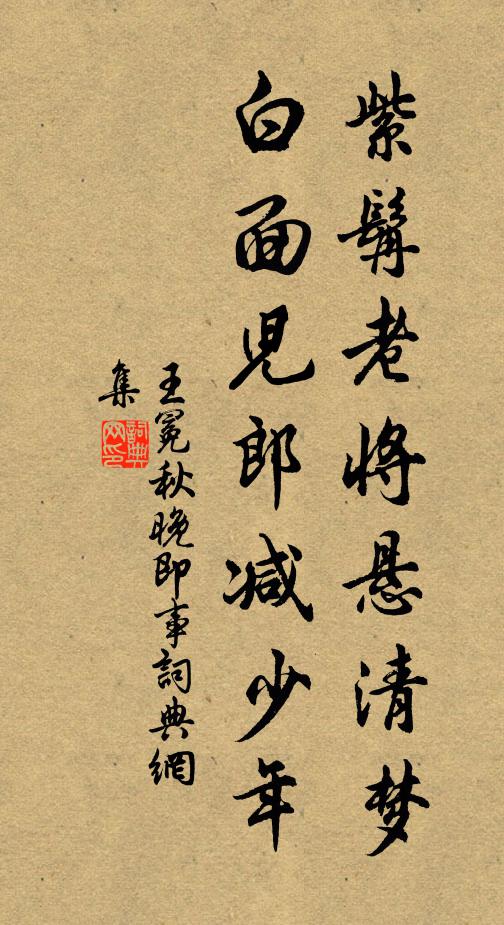 紫髯老将悬清梦
白面児郎减少年
王冕秋晚即事詞典網
集
詞典网印